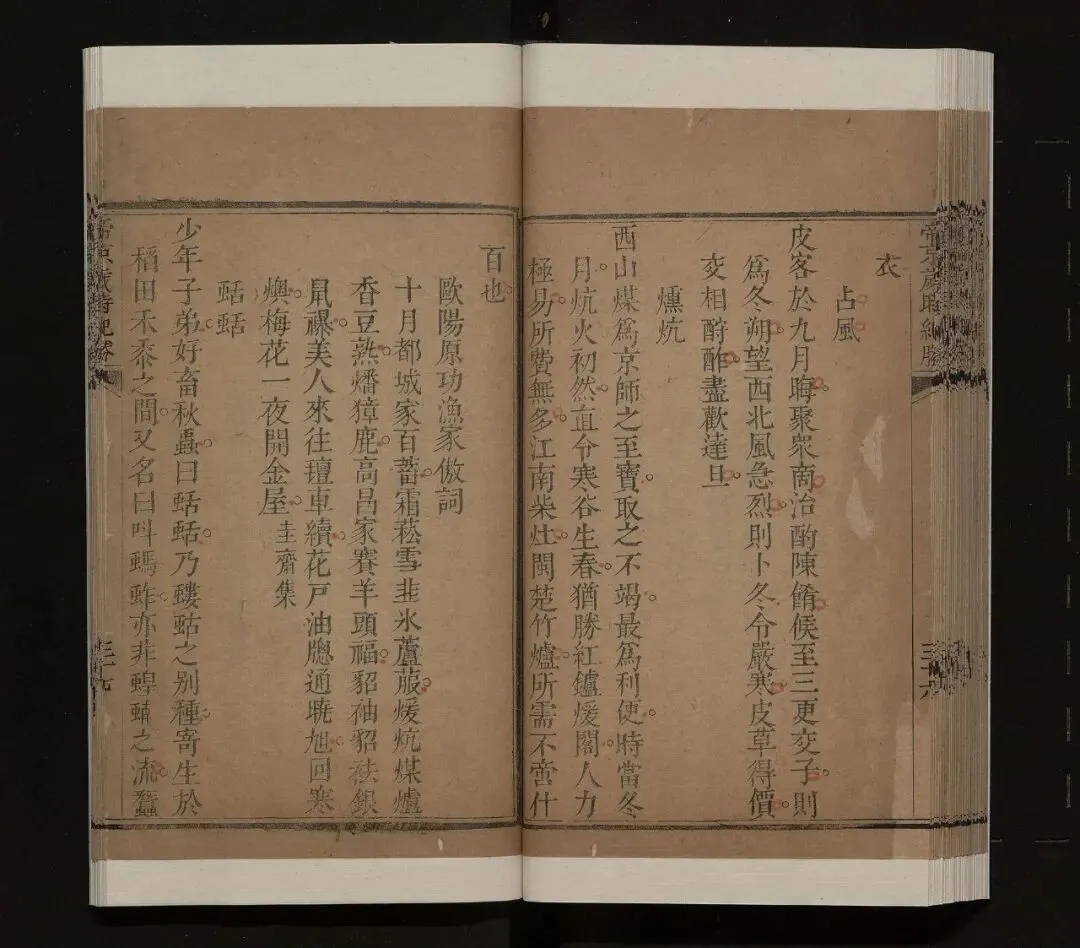 帝京歲時紀勝
三十六
衣
占風
皮客於九月晦聚衆商治酌陳餚候至三更交子則
爲冬朔望西北風急烈則卜冬令嚴寒皮草得價
交相酧酢盡歡達旦
燻炕
西山煤爲京師之至寶取之不竭最爲利便時當冬
月炕火初然直令寒谷生春猶勝紅鑪煖閣人力
極易所費無多江南柴灶閩楚竹爐所需不啻什
百也
歐陽原功漁家傲詞
十月都城家百蓄霜菘雪韭氷蘆菔煖炕煤爐
香豆熟燔獐鹿高昌家賽羊頭福貂袖貂袪銀
鼠襮美人來往氊車續花戸油牕通曉旭回寒
燠梅花一夜開金屋 圭齋集
蛞蛞
少年子弟好畜秋蟲曰蛞蛞乃螻蛄之别種寄生於
稻田禾黍之間又名曰叫螞蚱亦非蝗蝻之流蠶